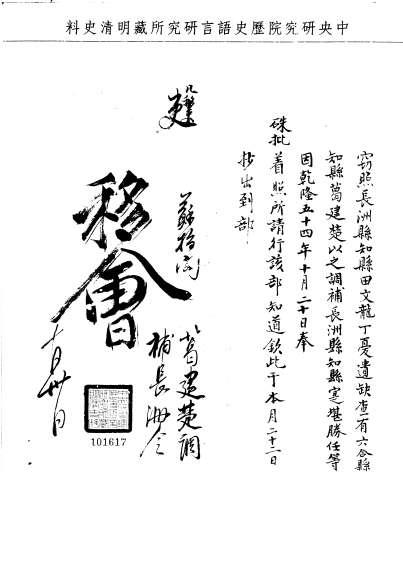 中央研究院歷史語言研究所藏明清史料
竊照長洲縣知縣田文龍丁憂遺缺查有六合縣
知縣葛建楚以之調補長洲縣知縣寔堪勝任等
因乾隆五十四年十月二十日奉
硃批着照所請行該部知道欽此于本月二十二日
抄出到部
葛建楚調
補長洲令
移會
十月卅日
101617